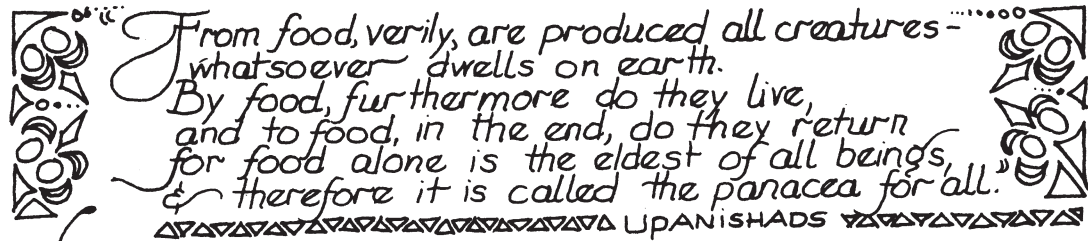 From food, verily, are produced all creatures-
whatsoever dwells on earth.
By food, furthermore do they live,
and to food, in the end, do they return
for food alone is the eldest of all beings,
& therefore it is called the panacea for all."
UPANiSHADS